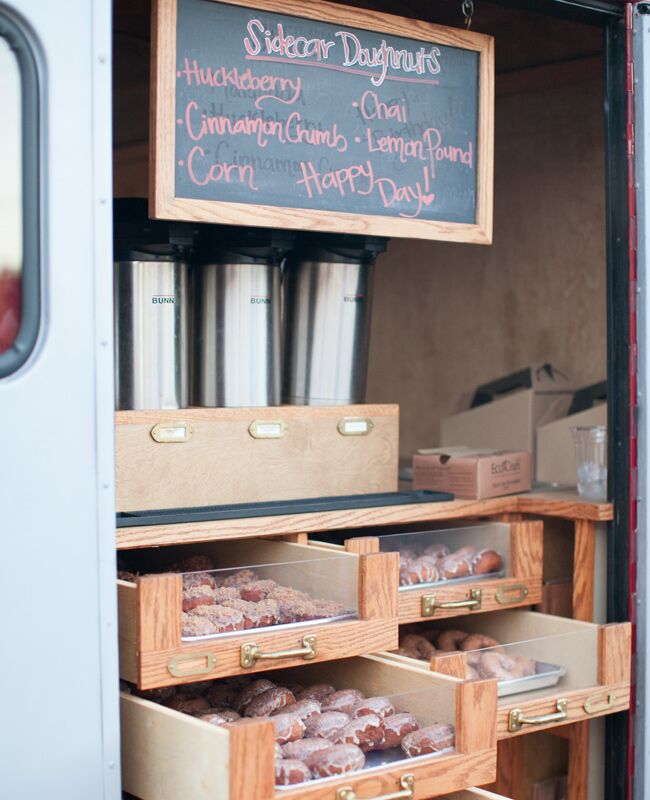 Sidecar Doughnuts
• Huckleberry
• Chai
• Cinnamon Crumb
• Lemon Pound
• Corn
Happy Day!
BUNN
BUNN
BUNN
EcoCraft